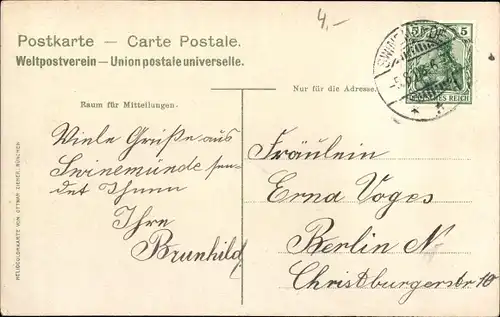 4,-
Postkarte — Carte Postale.
Weltpostverein — Union postale universelle.
Nur für die Adresse.
Raum für Mitteilungen.
Viele Grüße aus
Swinemünde sen-
det Ihnen
Ihre
Brunhild.
Fräulein
Erna Voges
Berlin N
Christburgerstr 10
5 5
REICH
HELIOCOLORKARTE VON OTTMAR ZIEHER, MÜNCHEN